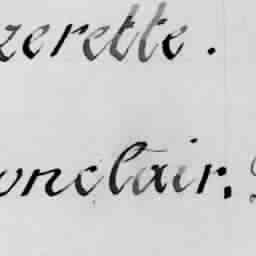 zerette.
onclair.